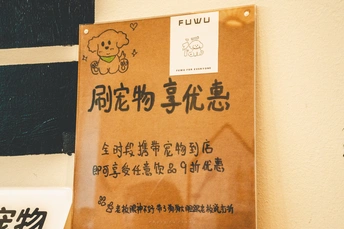 FUWU
FUWU FOR EVERYONE
刷宠物享优惠
全时段携带宠物到店
即可享受任意饮品9折优惠
宠物